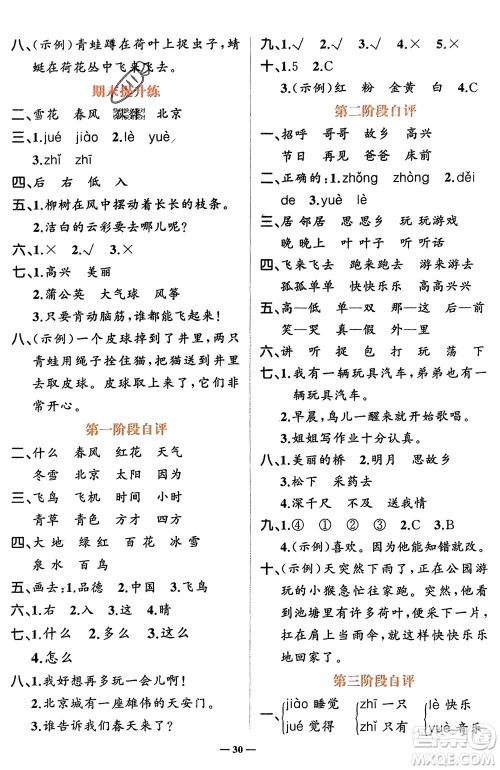 八、(示例)青蛙蹲在荷叶上捉虫子,蜻
蜓在荷花丛中飞来飞去。
期末提升练
二、雪花 春风 北京
三、1.jué jiào 2.lè yuè
3.zhǐ zhī
四、后 右 低 入
五、1.柳树在风中摆动着长长的枝条。
2.洁白的云彩变化出许多图案。
六、1.× 2.√ 3.×
七、1.高兴 美丽
2.蒲公英 大气球 风筝
3.只要肯动脑筋,谁都能飞起来!
八、(示例)一个皮球掉到了井里,两只
青蛙用绳子拴住猫,把猫送到井里
去取皮球。皮球取上来了,它们非常
开心。
第一阶段自评
二、什么 春风 红花 天气
冬雪 北京 太阳 因为
三、飞鸟 时间 中国 时光
青草 青色 方才 四方
四、大地 绿红 百花 冰雪
泉水 百鸟
五、画去:1.品德 2.中国 3.飞鸟
六、1.右 2.入 3.这 4.晴
七、1.什么 2.那么 3.这么
4.怎么
八、1.我好想再多玩一会儿啊!
2.北京城有一座雄伟的天安门。
3.谁告诉我们春天来了?
九、1.× 2.√ 3.√ 4.×
十、1.5 2.C
3.(示例)红 粉 金黄 白 4.C
第二阶段自评
一、招呼 哥哥 故乡 高兴
节日 再见 爸爸 床前
二、正确的:1.zhǒng zhòng 2.děi
de 3.yuè lè
三、居 邻居 思 思乡 玩 玩游戏
晚 晚上 叶 叶子 听 听话
四、飞来飞去 跑来跑去 游来游去
孤孤单单 快快乐乐 高高兴兴
五、高—低 单—双 前—后
笑—哭 真—假 外—里
六、讲 听 捉 包 打 玩 荡 下
七、1.我有一辆玩具汽车,弟弟也有一
辆玩具汽车。
2.早晨,鸟儿一醒来就唱起了歌。
3.姐姐写作业十分认真。
八、1.美丽的桥 2.明月 思故乡
3.松下 采药去
4.深千尺 不及 送我情
九、1.④ ① ② ③ 2.C 3.B
4.(示例)喜欢。因为他知错就改。
十、(示例)天突然下雨了,正在公园游
玩的小猴急忙往家跑。它看到前
面的池塘里有许多荷叶,便摘下一
片,用荷叶当雨伞,快快乐乐
地回家了。
第三阶段自评
一、jiào睡觉 zhī一只 lè快乐
jué觉得 zhǐ只有 yuè音乐
30